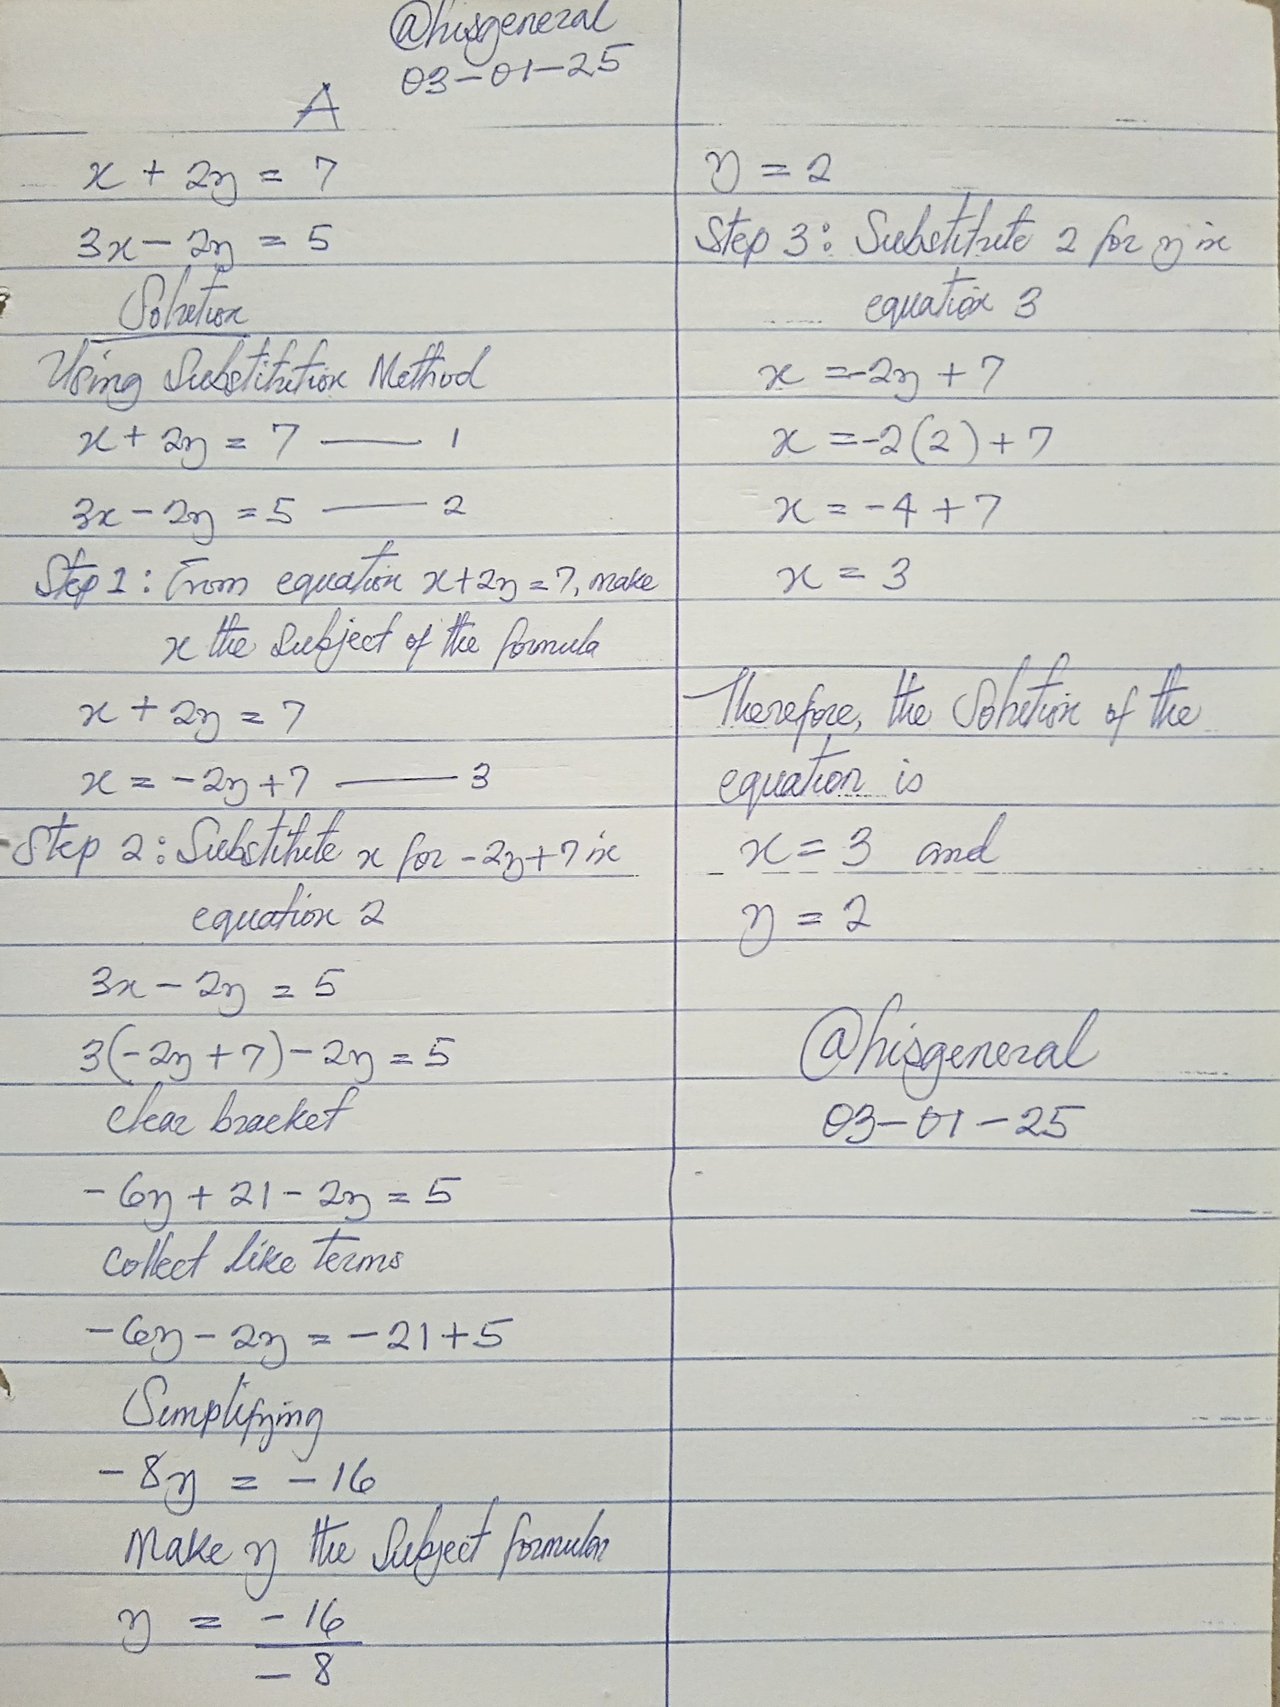 @hisgeneral
03-01-25
A
x + 2y = 7
3x - 2y = 5
Solution
Using Substitution Method
x + 2y = 7 —— 1
3x - 2y = 5 —— 2
Step 1: From equation x+2y=7, make
x the subject of the formula
x + 2y = 7
x = -2y+7 —— 3
Step 2: Substitute x for -2y+7 in
equation 2
3x - 2y = 5
3(-2y+7)-2y=5
clear bracket
-6y+21-2y=5
collect like terms
-6y-2y = -21+5
Simplifying
-8y = -16
Make y the subject formular
y = -16
-8
y = 2
Step 3: Substitute 2 for y in
equation 3
x = -2y + 7
x = -2(2)+7
x = -4+7
x = 3
Therefore, the Solution of the
equation is
x = 3 and
y = 2
@hisgeneral
03-01-25